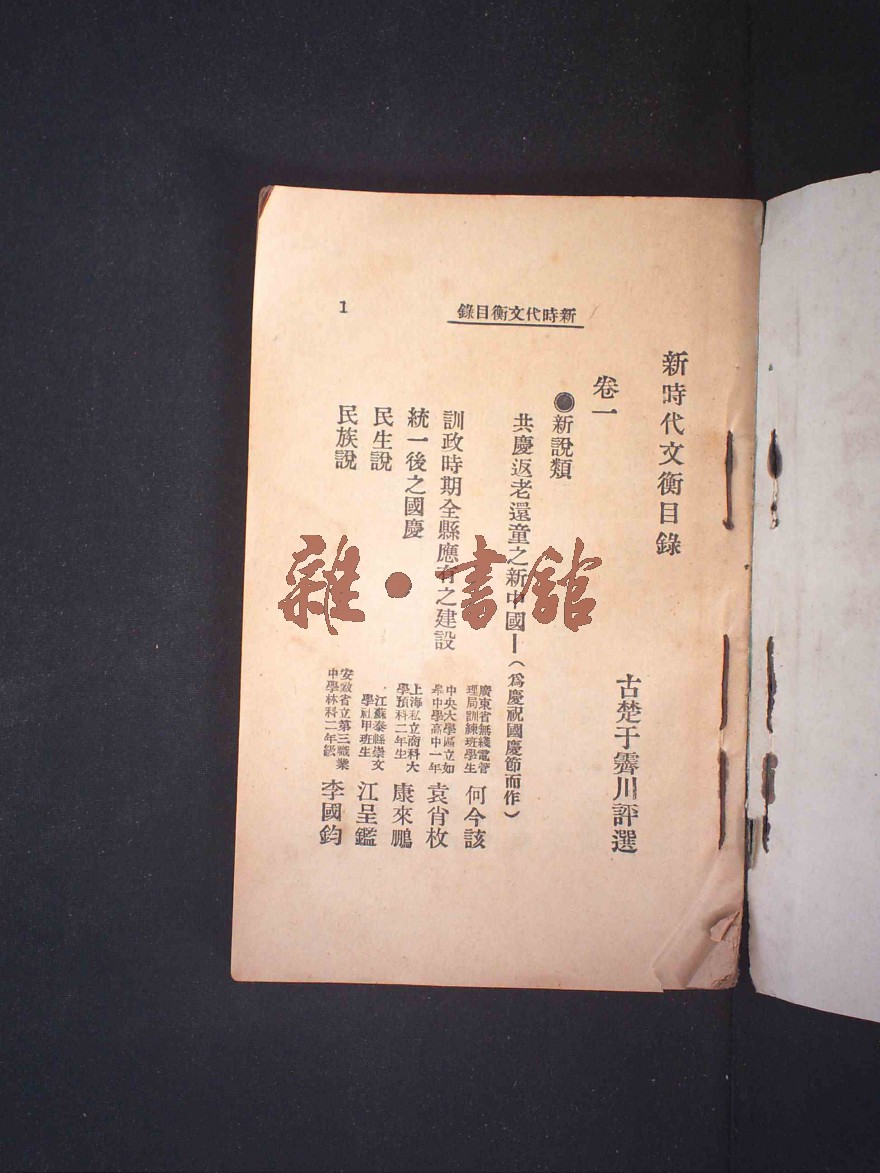 新時代文衡目錄
1
新時代文衡目錄
古楚于霽川評選
卷一
●新說類
共慶返老還童之新中國—(爲慶祝國慶節而作)
廣東省無綫電管
理局訓練班學生
何今該
訓政時期全縣應有之建設
中央大學區立如
皋中學高中一年
袁省枚
統一後之國慶
上海私立商科大
學預科二年生
康來鵬
民生說
江蘇泰縣崇文
學社甲班生
江呈鑑
民族說
安徽省立第三職業
中學林科二年級
李國鈞
雜·書館